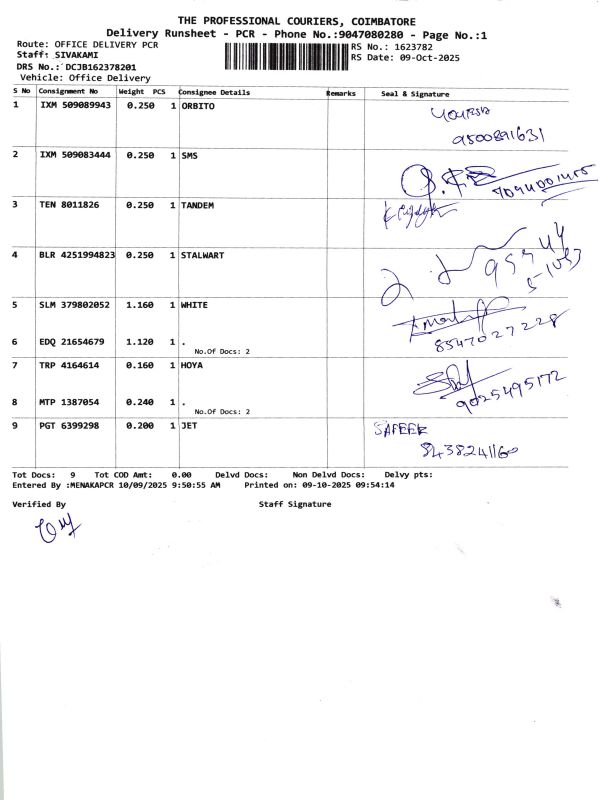 THE PROFESSIONAL COURIERS, COIMBATORE
Delivery Runsheet - PCR - Phone No.:9047080280 - Page No.:1
Route: OFFICE DELIVERY PCR
Staff: SIVAKAMI
DRS No.: DCJB162378201
Vehicle: Office Delivery
RS No.: 1623782
RS Date: 09-Oct-2025
S No Consignment No Weight PCS Consignee Details Remarks Seal & Signature
1 IXM 509089943 0.250 1 ORBITO
9500891631
2 IXM 509083444 0.250 1 SMS
9094001455
3 TEN 8011826 0.250 1 TANDEM
4 BLR 4251994823 0.250 1 STALWART
5 SLM 379802052 1.160 1 WHITE
8547027228
6 EDQ 21654679 1.120 1 .
No.Of Docs: 2
7 TRP 4164614 0.160 1 HOYA
9025495172
8 MTP 1387054 0.240 1 .
No.Of Docs: 2
9 PGT 6399298 0.200 1 JET
SAFEER
8438241160
Tot Docs: 9 Tot COD Amt: 0.00 Delvd Docs: Non Delvd Docs: Delvy pts:
Entered By :MENAKAPCR 10/09/2025 9:50:55 AM Printed on: 09-10-2025 09:54:14
Verified By Staff Signature